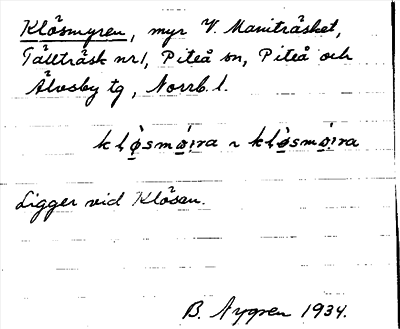 Klösmyren, myr V. Maniträsket,
Tällträsk nr 1, Piteå sn, Piteå och
Älvsby tg, Norrb. l.
klø̀smø̣i̯ra ~ klø̀smø̣i̯ra
Ligger vid Klösen.
B. Nygren 1934.